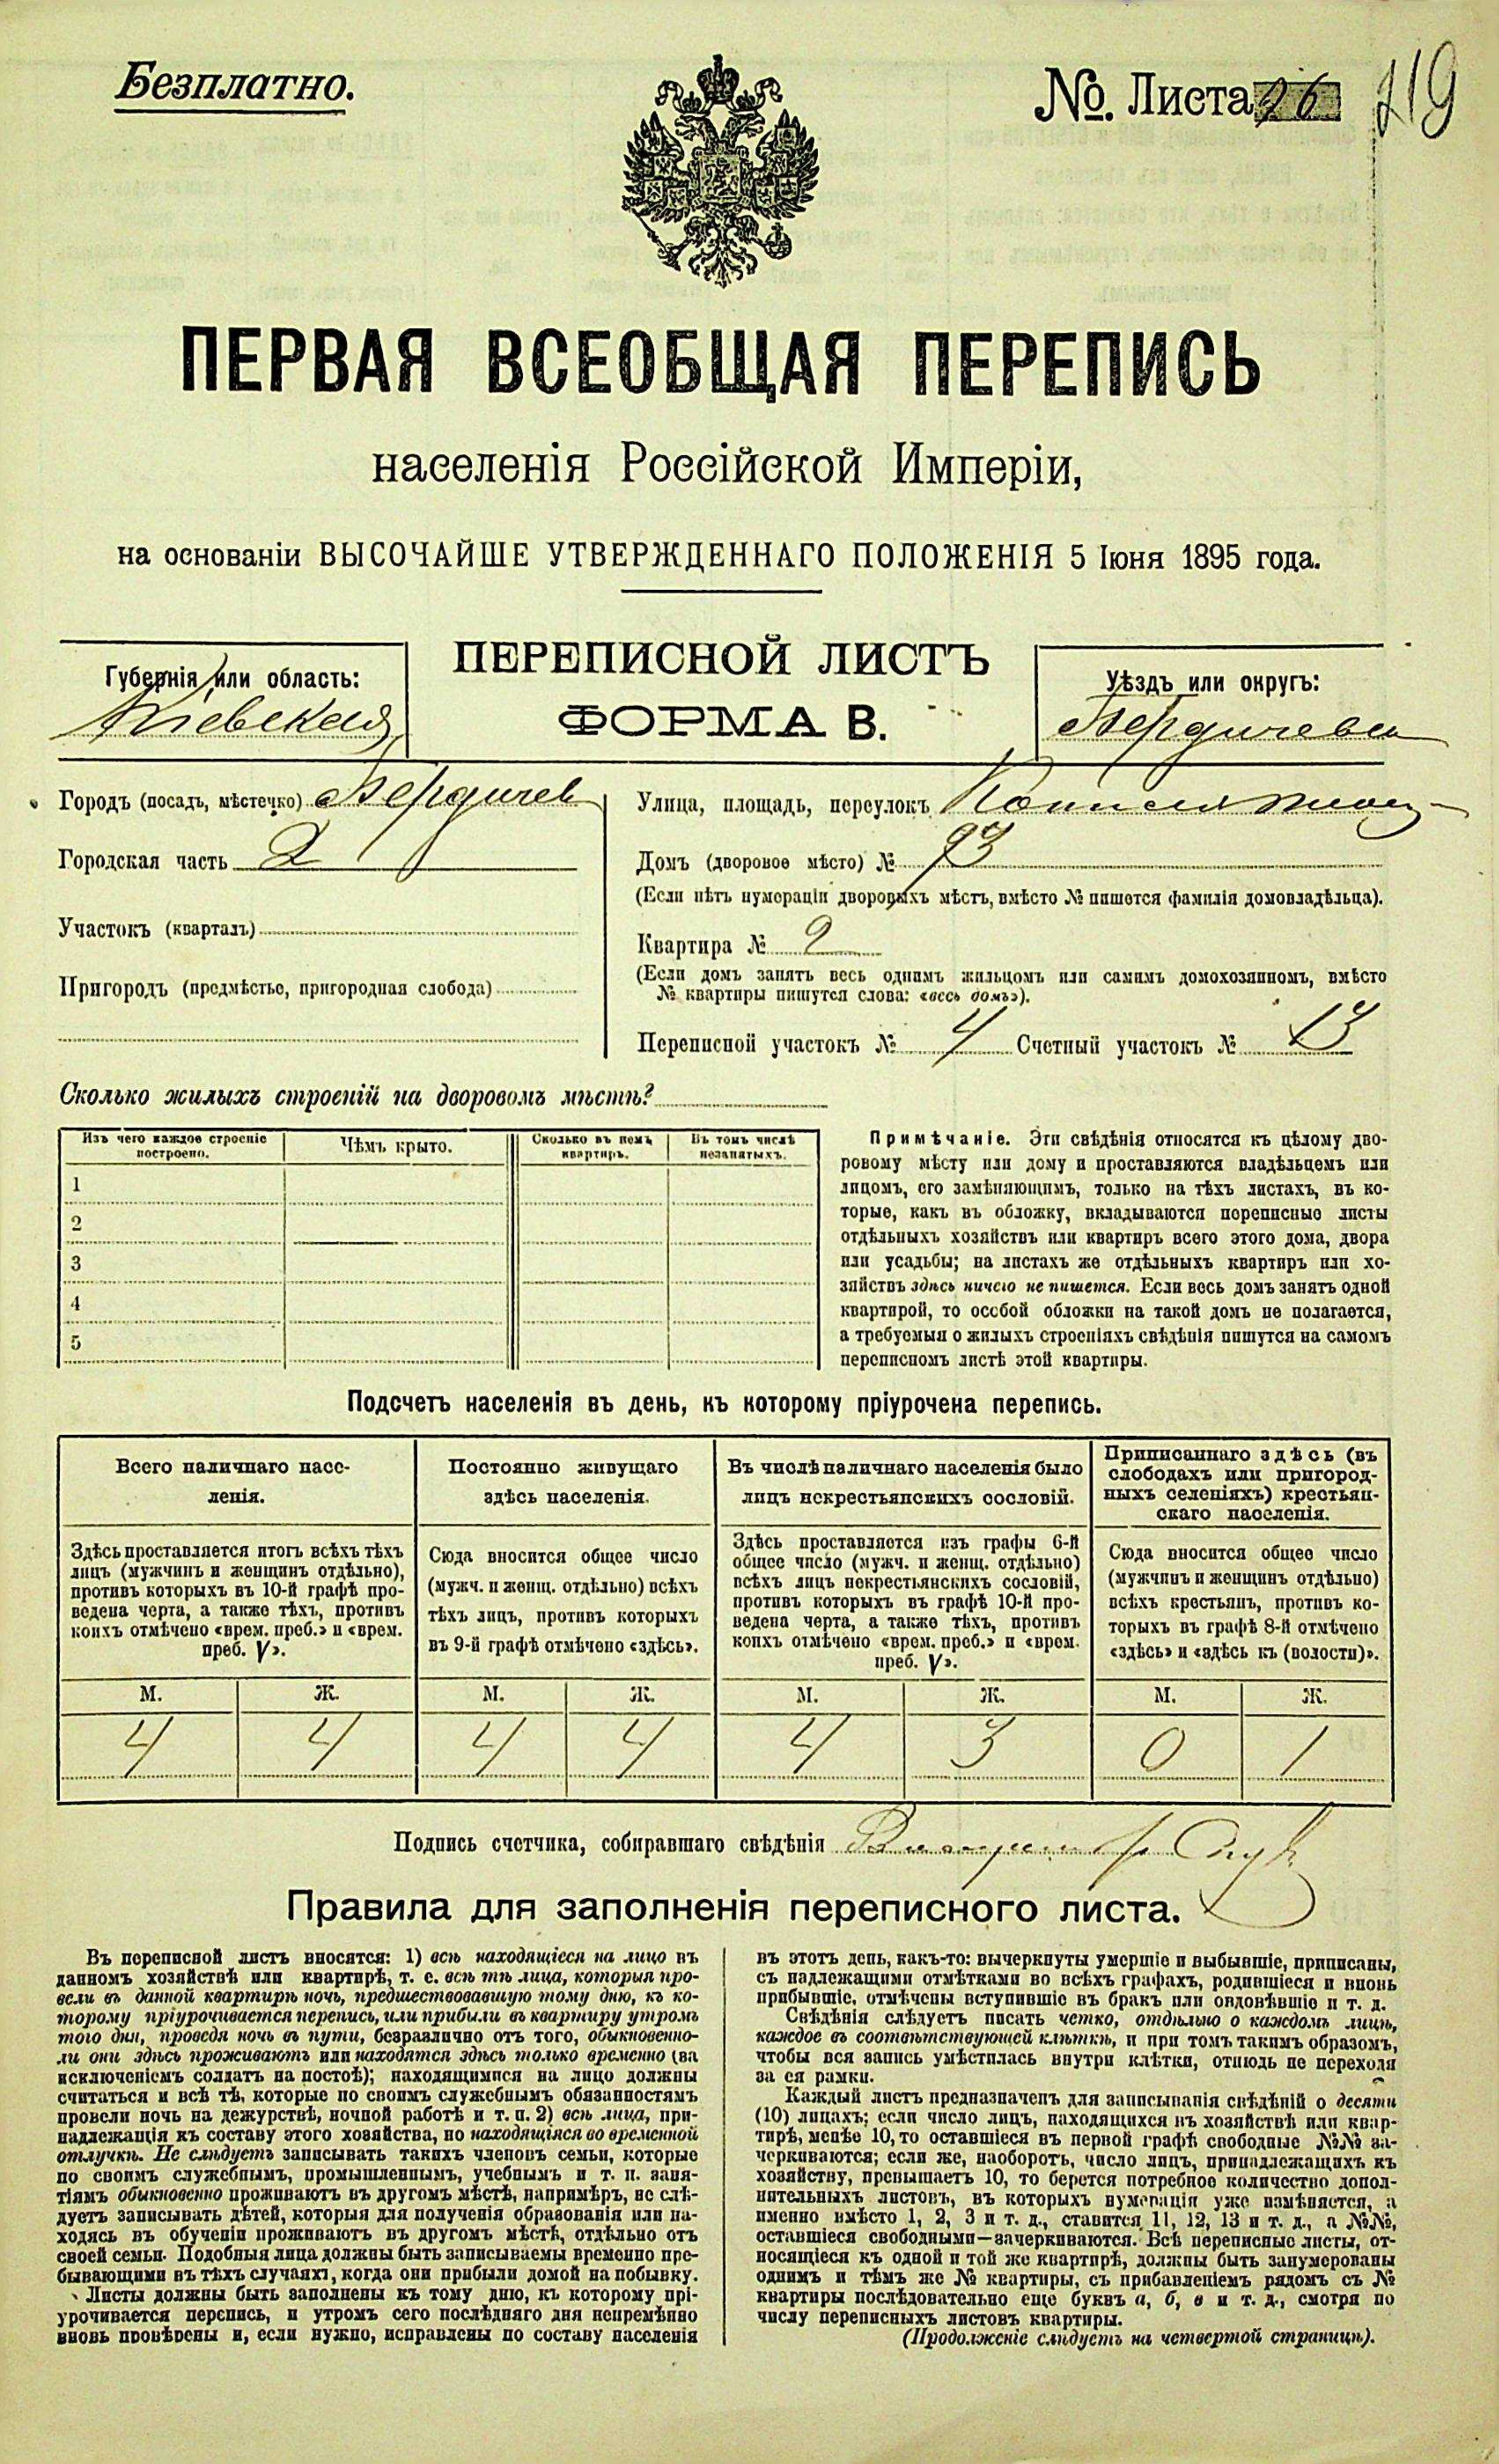 Безплатно.
№. Листа 26 219
ПЕРВАЯ ВСЕОБЩАЯ ПЕРЕПИСЬ
населенія Россійской Имперіи,
на основаніи ВЫСОЧАЙШЕ УТВЕРЖДЕННАГО ПОЛОЖЕНІЯ 5 Іюня 1895 года.
Губернія или область:
Кіевская
ПЕРЕПИСНОЙ ЛИСТЪ
ФОРМА В.
Уѣздъ или округъ:
Бердичевск
Городъ (посадъ, мѣстечко) Бердичев
Городская часть 2
Участокъ (кварталъ)
Пригородъ (предмѣстье, пригородная слобода)
Улица, площадь, переулокъ
Домъ (дворовое мѣсто) № 93
(Если нѣтъ нумораціи дворовыхъ мѣстъ, вмѣсто № пишется фамилія домовладѣльца).
Квартира № 2
(Если домъ занятъ весь однимъ жильцомъ или самимъ домохозяиномъ, вмѣсто
№ квартиры пишутся слова: «весь домъ»).
Переписной участокъ № 4 Счетный участокъ № 13
Сколько жилыхъ строеній на дворовомъ мѣстѣ?
Изъ чего каждое строеніе
построено.
Чѣмъ крыто.
Сколько въ немъ
квартиръ.
Въ томъ числѣ
незанятыхъ.
1
2
3
4
5
Примѣчаніе. Эти свѣдѣнія относятся къ цѣлому дво-
ровому мѣсту или дому и проставляются владѣльцемъ или
лицомъ, его замѣняющимъ, только на тѣхъ листахъ, въ ко-
торые, какъ въ обложку, вкладываются переписные листы
отдѣльныхъ хозяйствъ или квартиръ всего этого дома, двора
или усадьбы; на листахъ же отдѣльныхъ квартиръ или хо-
зяйствъ здѣсь ничего не пишется. Если весь домъ занятъ одной
квартирой, то особой обложки на такой домъ не полагается,
а требуемыя о жилыхъ строеніяхъ свѣдѣнія пишутся на самомъ
переписномъ листѣ этой квартиры.
Подсчетъ населенія въ день, къ которому пріурочена перепись.
Всего наличнаго насе-
ленія.
Здѣсь проставляется итогъ всѣхъ тѣхъ
лицъ (мужчинъ и женщинъ отдѣльно),
противъ которыхъ въ 10-й графѣ про-
ведена черта, а также тѣхъ, противъ
коихъ отмѣчено «врем. преб.» и «врем.
преб. V».
Постоянно живущаго
здѣсь населенія.
Сюда вносится общее число
(мужч. и женщ. отдѣльно) всѣхъ
тѣхъ лицъ, противъ которыхъ
въ 9-й графѣ отмѣчено «здѣсь».
Въ числѣ наличнаго населенія было
лицъ некрестьянскихъ сословій.
Здѣсь проставляется изъ графы 6-й
общее число (мужч. и женщ. отдѣльно)
всѣхъ лицъ некрестьянскихъ сословій,
противъ которыхъ въ графѣ 10-й про-
ведена черта, а также тѣхъ, противъ
коихъ отмѣчено «врем. преб.» и «врем.
преб. V».
Приписаннаго здѣсь (въ
слободахъ или пригород-
ныхъ селеніяхъ) крестьян-
скаго населенія.
Сюда вносится общее число
(мужчинъ и женщинъ отдѣльно)
всѣхъ крестьянъ, противъ ко-
торыхъ въ графѣ 8-й отмѣчено
«здѣсь» и «здѣсь къ (волости)».
М. Ж. М. Ж. М. Ж. М. Ж.
4 4 4 4 4 3 0 1
Подпись счетчика, собиравшаго свѣдѣнія
Правила для заполненія переписного листа.
Въ переписной листъ вносятся: 1) всѣ находящіеся на лицо въ
данномъ хозяйствѣ или квартирѣ, т. е. всѣ тѣ лица, которыя про-
вели въ данной квартирѣ ночь, предшествовавшую тому дню, къ ко-
торому пріурочивается перепись, или прибыли въ квартиру утромъ
того дня, проведя ночь въ пути, безразлично отъ того, обыкновенно-
ли они здѣсь проживаютъ или находятся здѣсь только временно (за
исключеніемъ солдатъ на постоѣ); находящимися на лицо должны
считаться и всѣ тѣ, которые по своимъ служебнымъ обязанностямъ
провели ночь на дежурствѣ, ночной работѣ и т. п. 2) всѣ лица, при-
надлежащія къ составу этого хозяйства, но находящіяся во временной
отлучкѣ. Не слѣдуетъ записывать такихъ членовъ семьи, которые
по своимъ служебнымъ, промышленнымъ, учебнымъ и т. п. заня-
тіямъ обыкновенно проживаютъ въ другомъ мѣстѣ, напримѣръ, не слѣ-
дуетъ записывать дѣтей, которыя для полученія образованія или на-
ходясь въ обученіи проживаютъ въ другомъ мѣстѣ, отдѣльно отъ
своей семьи. Подобныя лица должны быть записываемы временно пре-
бывающими въ тѣхъ случаяхъ, когда они прибыли домой на побывку.
Листы должны быть заполнены къ тому дню, къ которому прі-
урочивается перепись, и утромъ сего послѣдняго дня непремѣнно
вновь провѣрены и, если нужно, исправлены по составу населенія
въ этотъ день, какъ-то: вычеркнуты умершіе и выбывшіе, приписаны,
съ надлежащими отмѣтками во всѣхъ графахъ, родившіеся и вновь
прибывшіе, отмѣчены вступившіе въ бракъ или овдовѣвшіе и т. д.
Свѣдѣнія слѣдуетъ писать четко, отдѣльно о каждомъ лицѣ,
каждое въ соотвѣтствующей клѣткѣ, и при томъ такимъ образомъ,
чтобы вся запись умѣстилась внутри клѣтки, отнюдь не переходя
за ея рамки.
Каждый листъ предназначенъ для записыванія свѣдѣній о десяти
(10) лицахъ; если число лицъ, находящихся въ хозяйствѣ или квар-
тирѣ, менѣе 10, то оставшіеся въ первой графѣ свободные №№ за-
черкиваются; если же, наоборотъ, число лицъ, принадлежащихъ къ
хозяйству, превышаетъ 10, то берется потребное количество допол-
нительныхъ листовъ, въ которыхъ нумерація уже измѣняется, а
именно вмѣсто 1, 2, 3 и т. д., ставится 11, 12, 13 и т. д., а №№,
оставшіеся свободными—зачеркиваются. Всѣ переписные листы, от-
носящіеся къ одной и той же квартирѣ, должны быть занумерованы
однимъ и тѣмъ же № квартиры, съ прибавленіемъ рядомъ съ №
квартиры послѣдовательно еще буквъ а, б, в и т. д., смотря по
числу переписныхъ листовъ квартиры.
(Продолженіе слѣдуетъ на четвертой страницѣ).